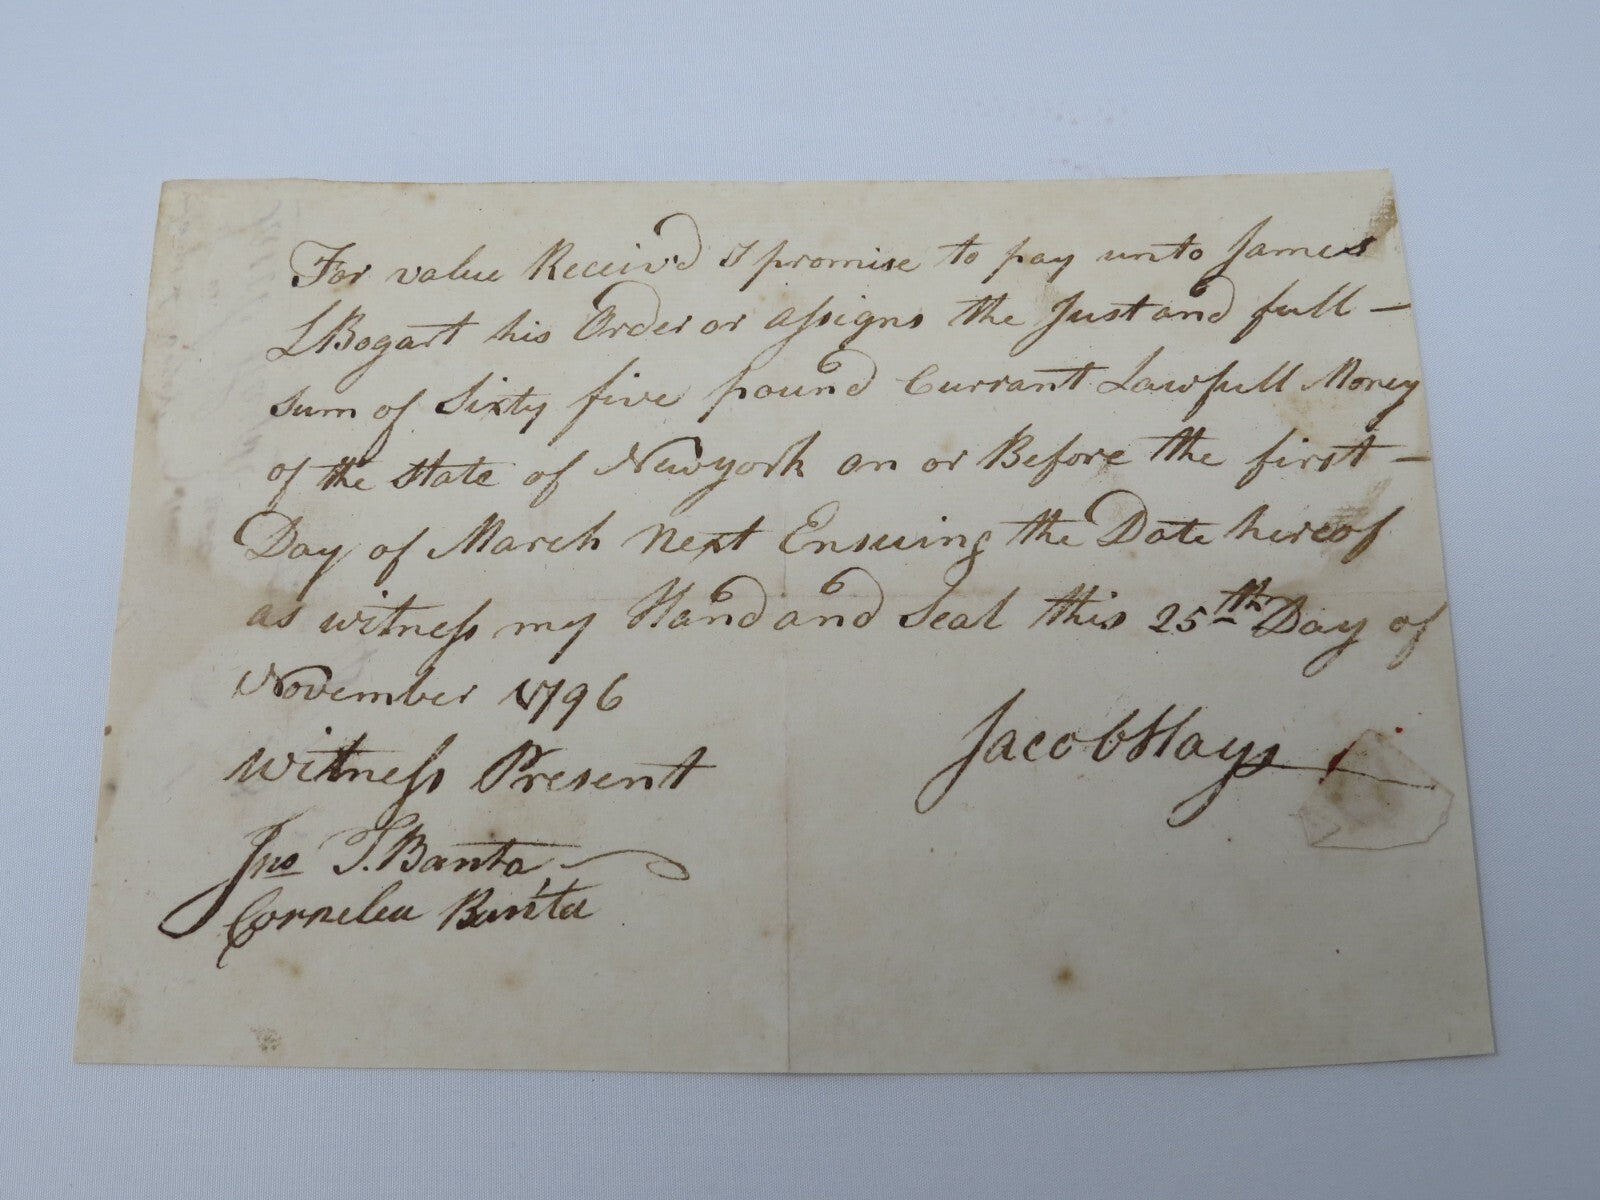 For value Receiv'd I promise to pay unto James
L Bogart his Order or assigns the Just and full —
sum of Sixty five pound Currant Lawfull Money
of the State of Newyork on or Before the first —
Day of March Next Ensuing the Date hereof
as witness my Hand and Seal this 25th Day of
November 1796
Witness Present
Jacob Hays
Jno T. Banta
Cornelea Banta